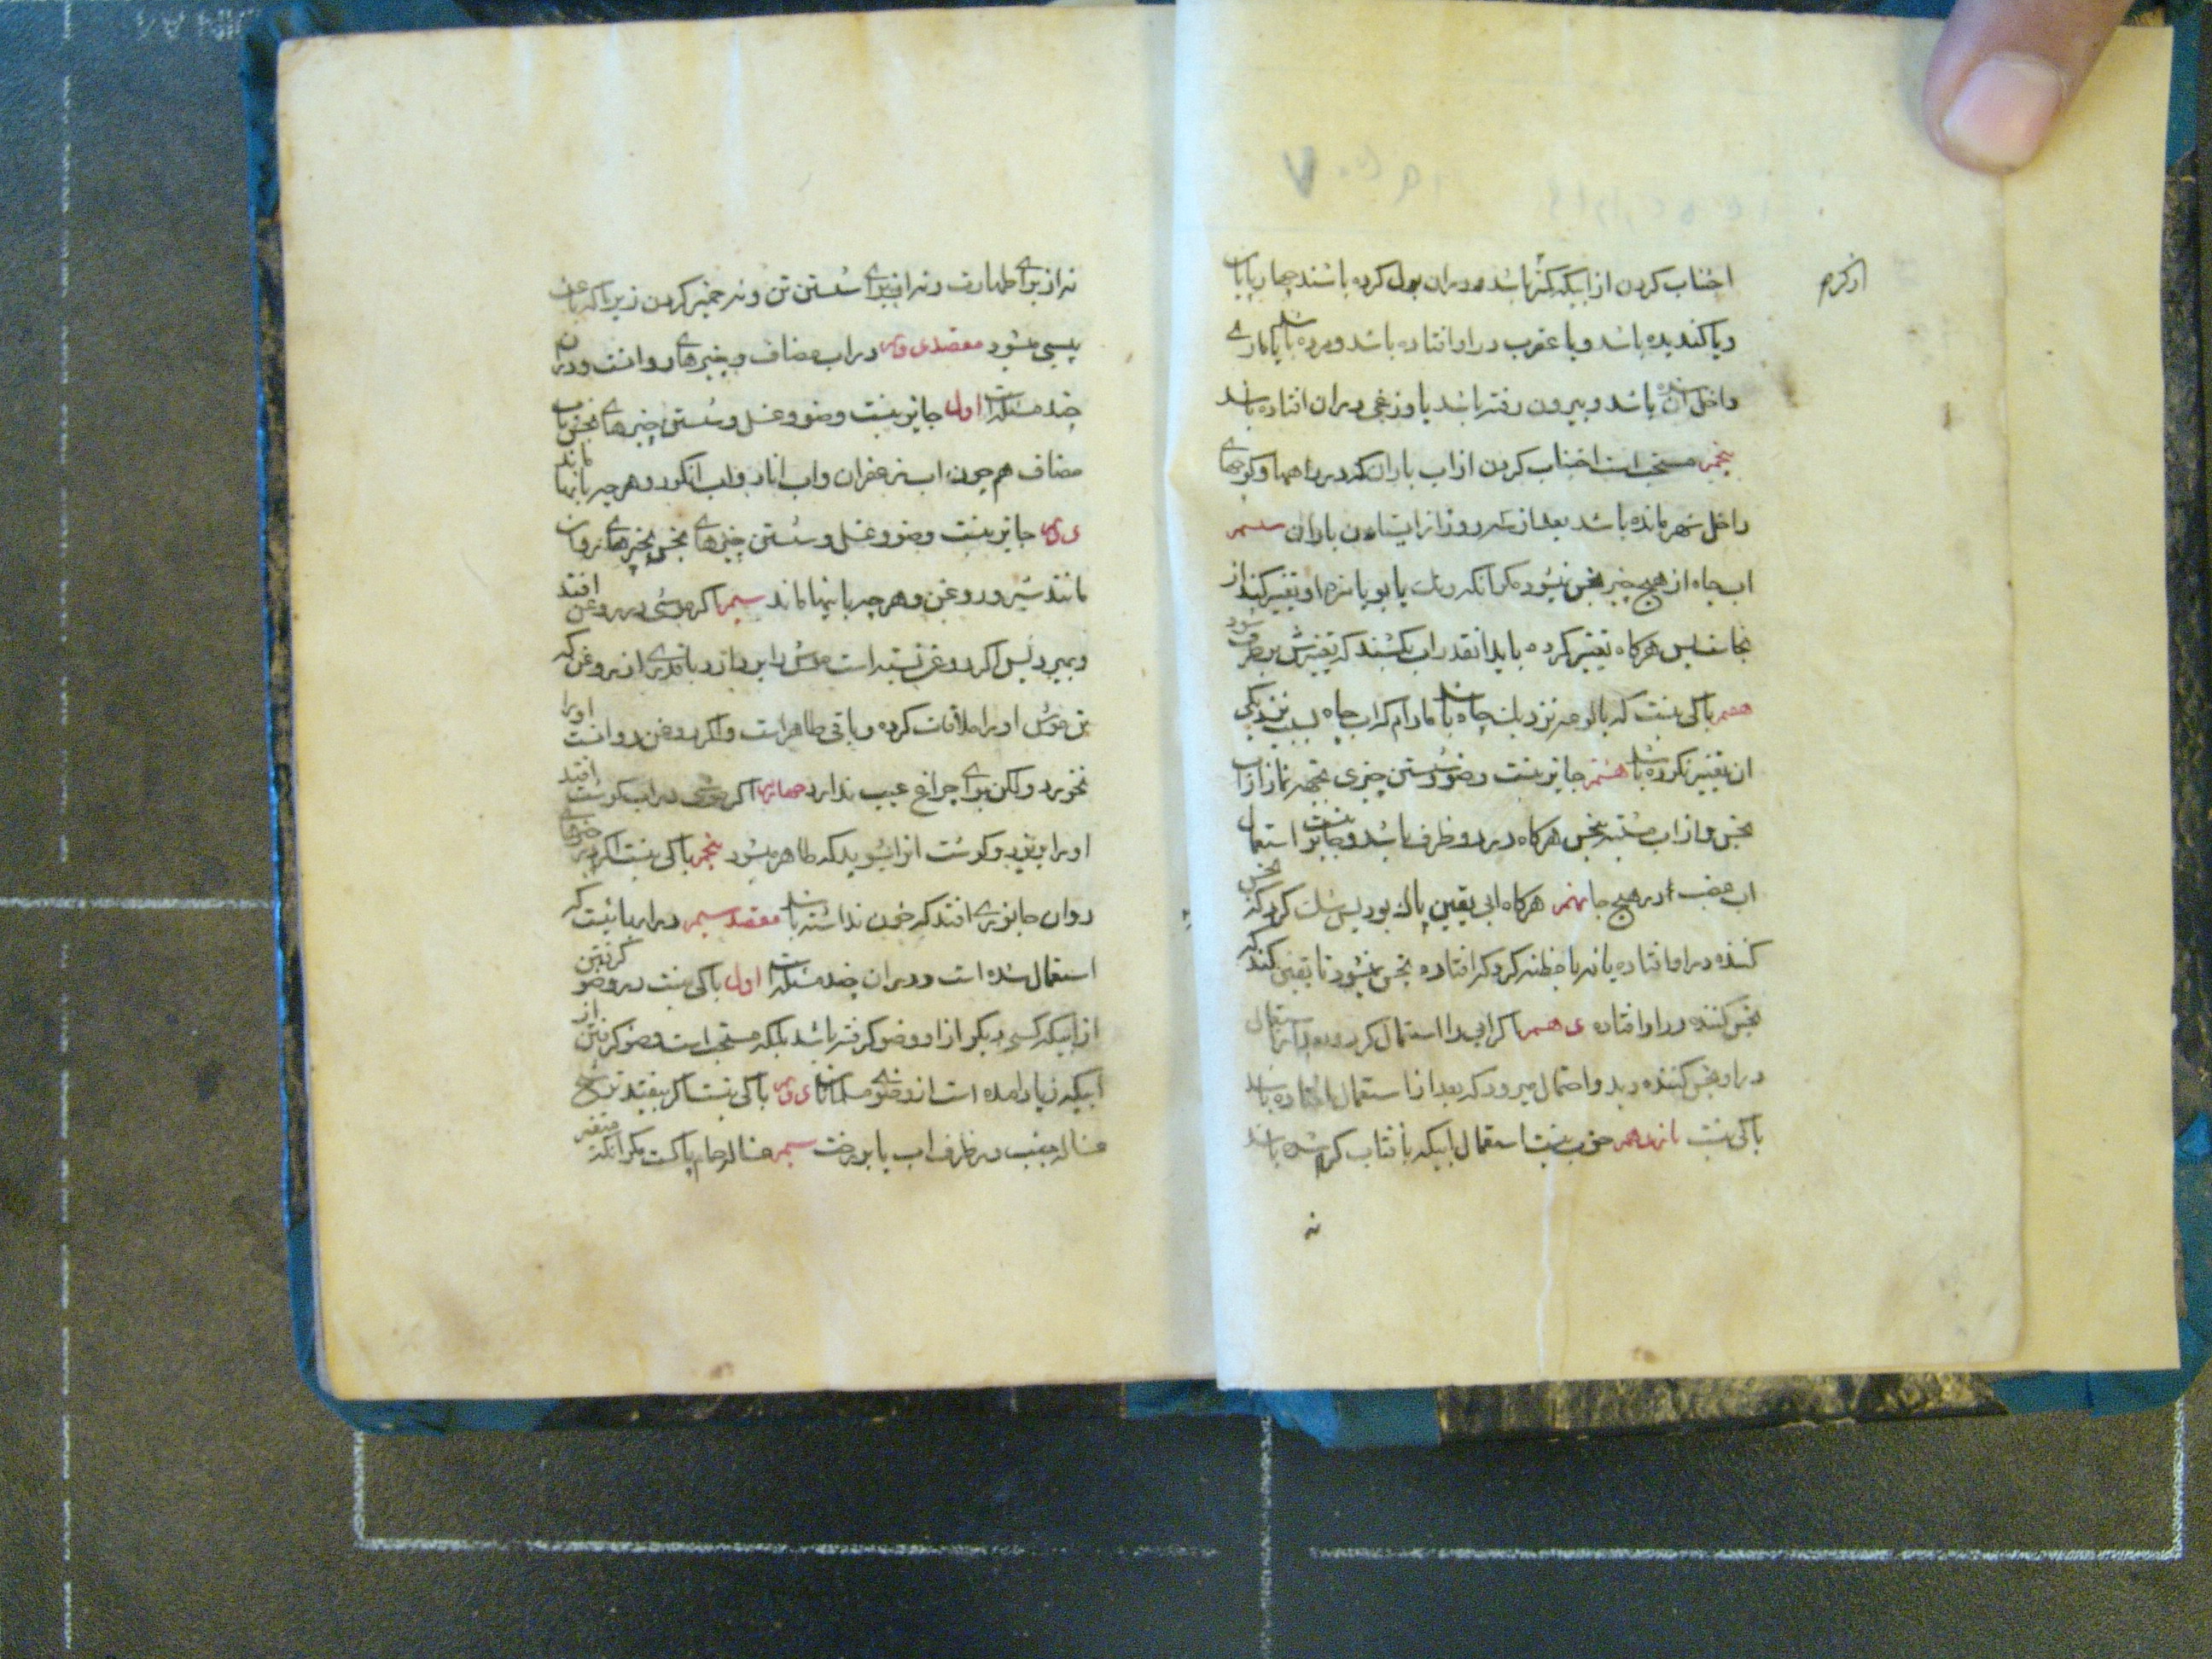 اجتناب کردن از ابیکه کمتر باشد و دران بول کرده باشند چهارپایان
ویا کندیده باشد ویا عقرب در او افتاده باشد ومرده باشد یا ماری
داخل ان شده باشد وبیرون رفته باشد یا وزغی دران افتاده باشد
پنجم مستحب است اجتناب کردن از اب باران که در راهها وکوچهای
داخل شهر مانده باشد بعد از سه روز از ایستادن باران ششم
اب چاه از هیچ چیز نجس نمیشود مکر انکه رنك یا بو یا مزه او تغییر کند از
نجاست پس هرکاه تغییر کرده باید انقدر اب بکشند که تغییرش برطرف شود
هفتم باکی نیست که بالوعه نزدیك چاه باشد مادام که اب چاه بسبب نزدیکی
ان تغییر نکرده باشد هشتم جایز نیست وضو وشستن چیزی بجهة نماز از اب
نجس واز اب مشتبه بنجس هرکاه در دو ظرف باشد وجایز نیست استعمال
اب غصب در هیچ جا نهم هرکاه ابی یقین پاك بود پس شك کرد که نجس
کننده در او افتاده یا نه یا مظنه کرد که افتاده نجس نمیشود تا یقین کند که
نجس کننده در او افتاده دهم اکر ابی را استعمال کرد وبعد از استعمال
در او نجس کننده دید واحتمال میرود که بعد از استعمال افتاده باشد
باکی نیست یازدهم خوب نیست استعمال ابیکه بافتاب کرم شده باشد
نه
نه از برای طهارت ونه از برای شستن تن ونه خمیر کردن زیرا که باعث
پیسی میشود مقصد دوم در اب مضاف وچیزهای روانست ودران
چند مسئله است اول جایز نیست وضو وغسل وشستن چیزهای نجس باب
مضاف هم چون اب زعفران واب انار واب انکور وهرچه باینها ماند
دوم جایز نیست وضو وغسل وشستن چیزهای نجس بچیزهای روان
مانند شیر وروغن وهرچه باینها ماند سیم اکر موشی در روغن افتد
وبمیرد پس اکر روغن بسته است موش را بردارد با قدری از روغن که
تن موش او را ملاقات کرده وباقی طاهر است واکر روغن روانست او را
نخورد ولکن برای چراغ عیب ندارد چهارم اکر موشی در اب کوشت افتد
او را بریزد وکوشت انرا بشوید که طاهر میشود پنجم باکی نیست اکر در چیزهای
روان جانوری افتد که خون نداشته باشد مقصد سیم در ابهائیست که
استعمال شده است ودران چند مسئله است اول باکی نیست در وضو کرفتن
از ابیکه کسی دیکر از او وضو کرفته باشد بلکه مستحب است وضو کرفتن از
ابیکه زیاد امده است از وضوی مسلمانان دوم باکی نیست اکر بیفتد ترشح
غساله جنب در ظرف اب یا بر رخت سیم غساله حمام پاکست مکر انکه متغیر